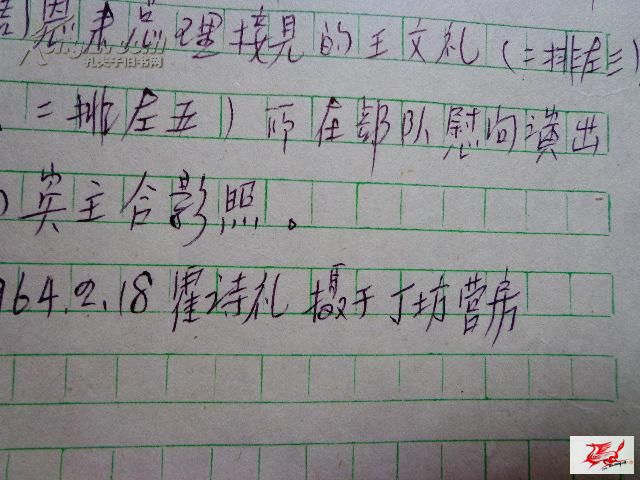 周恩来总理接見的王文礼（二排左三）
二排左五）所在部队慰问演出
宾主合影照。
964.2.18 霍诗礼 摄于丁坊营房
孔夫子旧书网